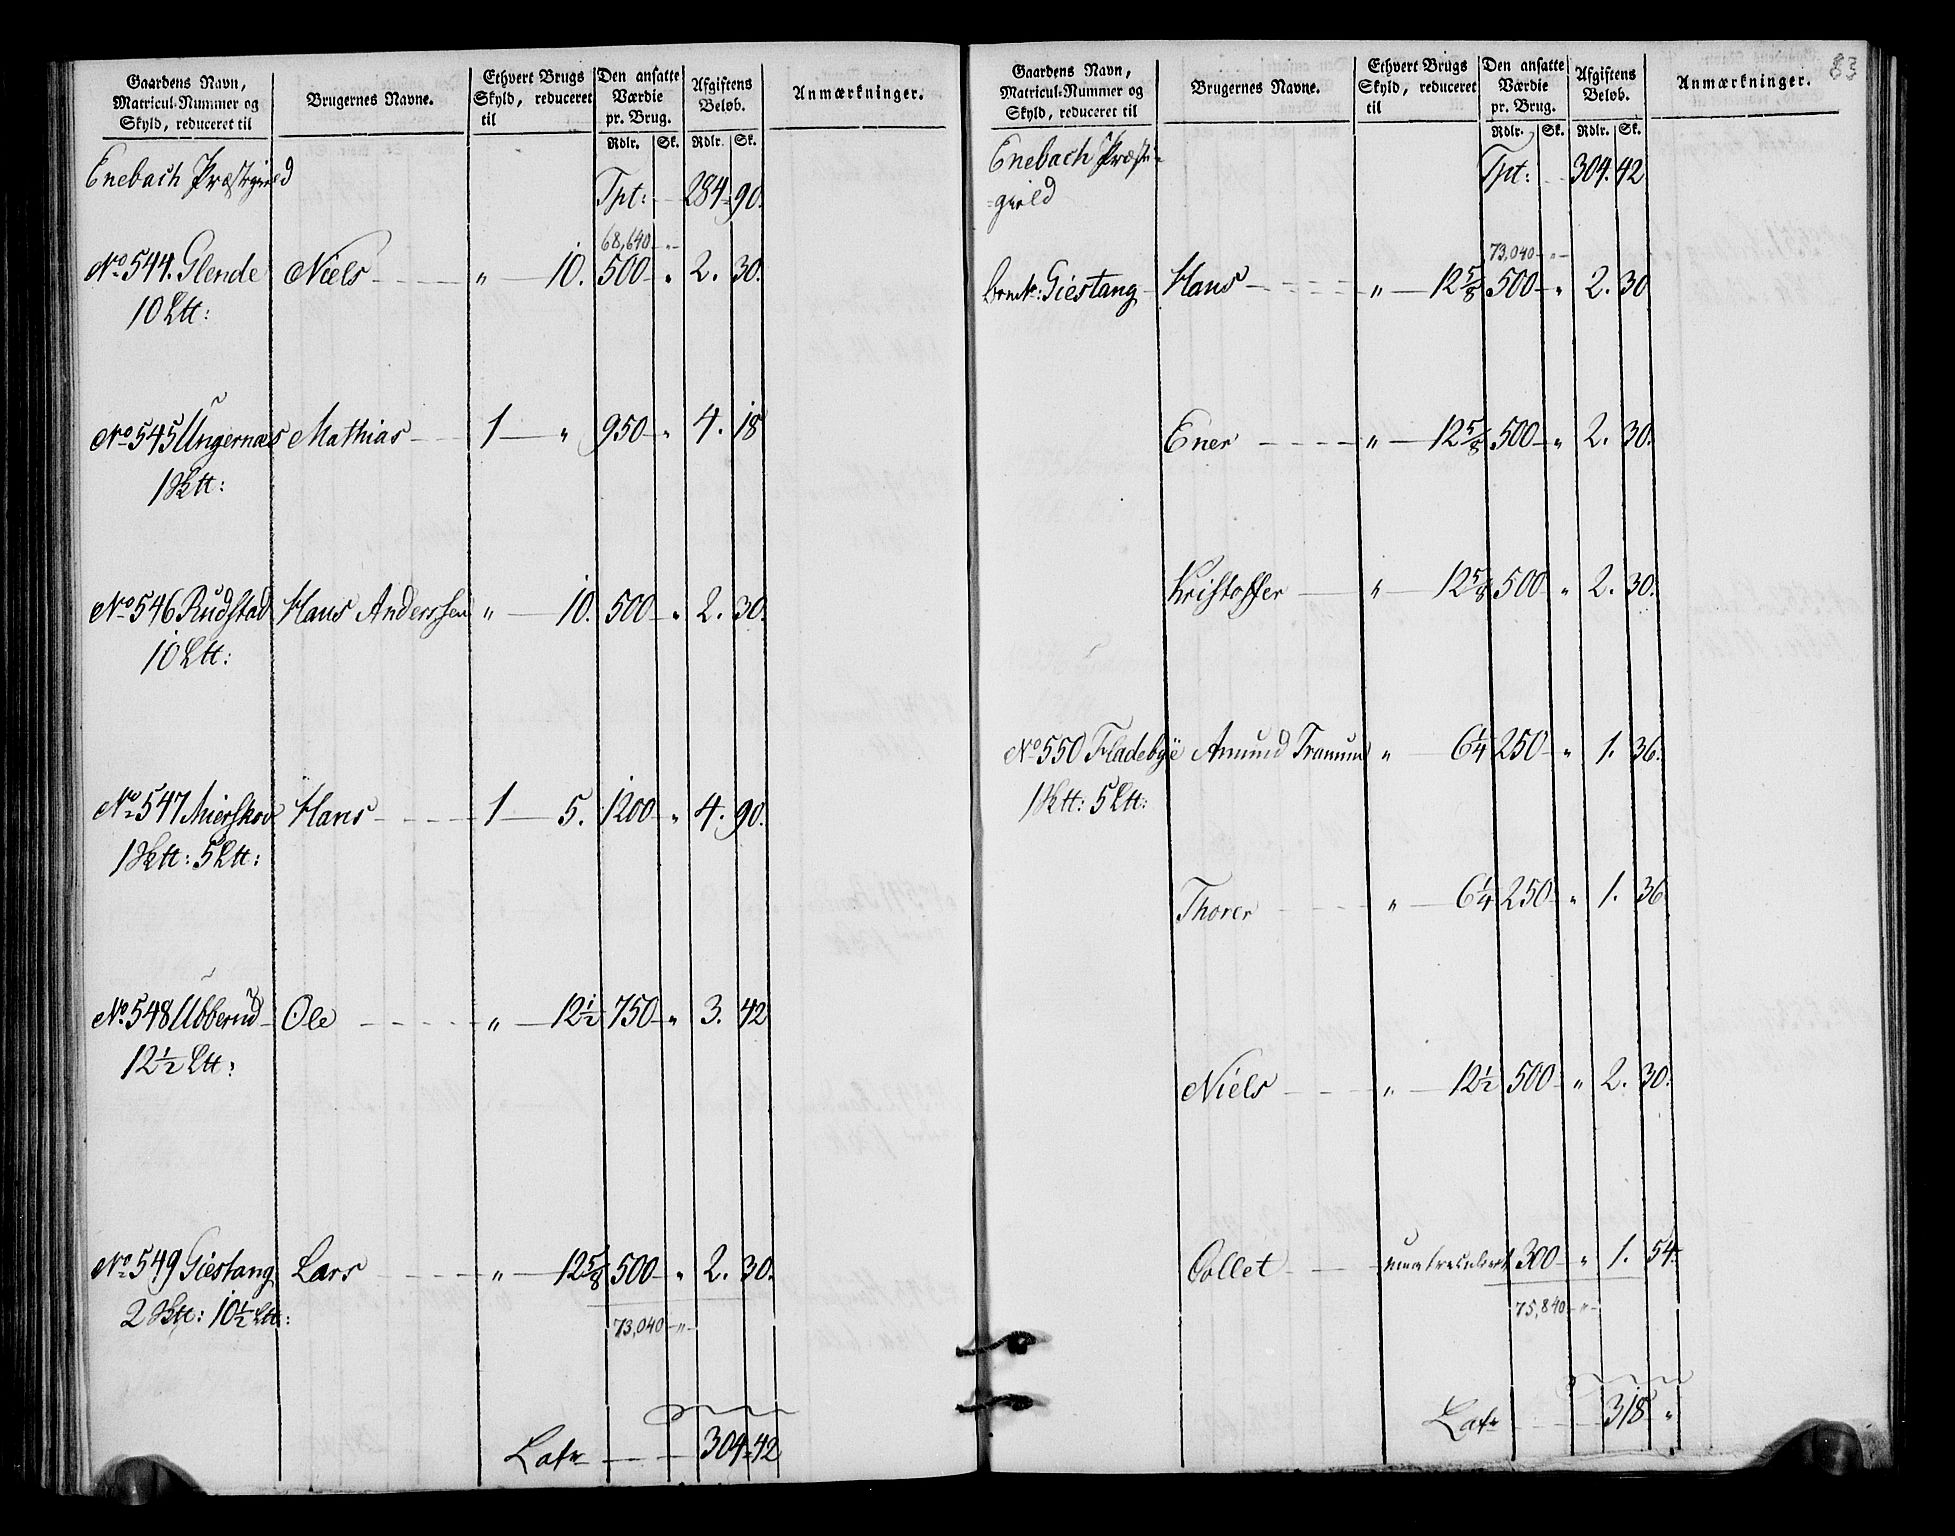 Gaardens Navn, Matricul-Nummer og Skyld, reduceret til | Brugernes Navne. | Ethvert Brugs Skyld, reduceret til | Den ansatte Værdie pr. Brug. Rdlr. Sk. | Afgiftens Beløb. Rdlr. Sk. | Anmærkninger.
Enebach Præstegield
Tpt: 284. 90.
68,640 - "
No 544. Glende Niels " 10. 500 " 2. 30.
10 Ltt:
No 545 Ungernæs Mathias 1 " 950 " 4. 18
1 Sktt:
No 546 Rudstad Hans Anderssen " 10. 500 " 2. 30.
10 Ltt:
No 547 Mierskov Hans 1 5. 1200 " 4. 90.
1 Sktt: 5 Ltt:
No 548 Ubberud Ole " 12½ 750 " 3. 42
12½ Ltt:
No 549 Giestang Lars " 12⅝ 500 " 2. 30.
2 Sktt: 10½ Ltt:
73,040 - "
Latr 304. 42
83
Gaardens Navn, Matricul-Nummer og Skyld, reduceret til | Brugernes Navne. | Ethvert Brugs Skyld, reduceret til | Den ansatte Værdie pr. Brug. Rdlr. Sk. | Afgiftens Beløb. Rdlr. Sk. | Anmærkninger.
Enebach Præste-
gield
Tpt: 304. 42
73,040 - "
Giestang Hans " 12⅝ 500 " 2. 30
Ener " 12⅝ 500 " 2. 30.
Kristoffer " 12⅝ 500 " 2. 30.
No 550 Fladebye Amund Tranum " 6¼ 250 " 1. 36.
1 Sktt: 5 Ltt:
Thorer " 6¼ 250 " 1. 36
Niels " 12½ 500 " 2. 30.
Collet umatriculeret 300 " 1. 54
75,840 - "
Latr 318 "